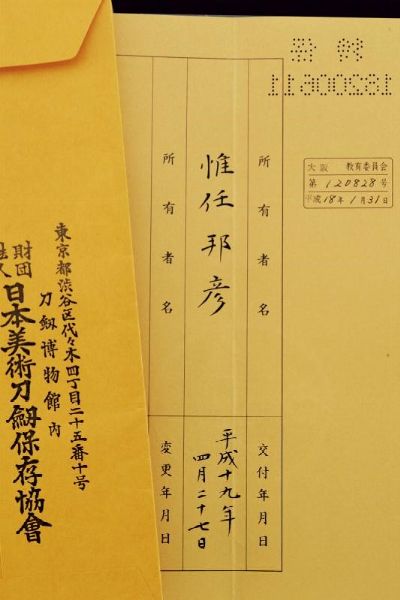 大阪 教育委員会
第 120828 号
平成 18年 1月 31日
所有者名
交付年月日
惟任邦彦
平成十九年
四月二十七日
所有者名
変更年月日
東京都渋谷区代々木四丁目二十五番十号
刀劔博物館内
財団
日本美術刀劔保存協會